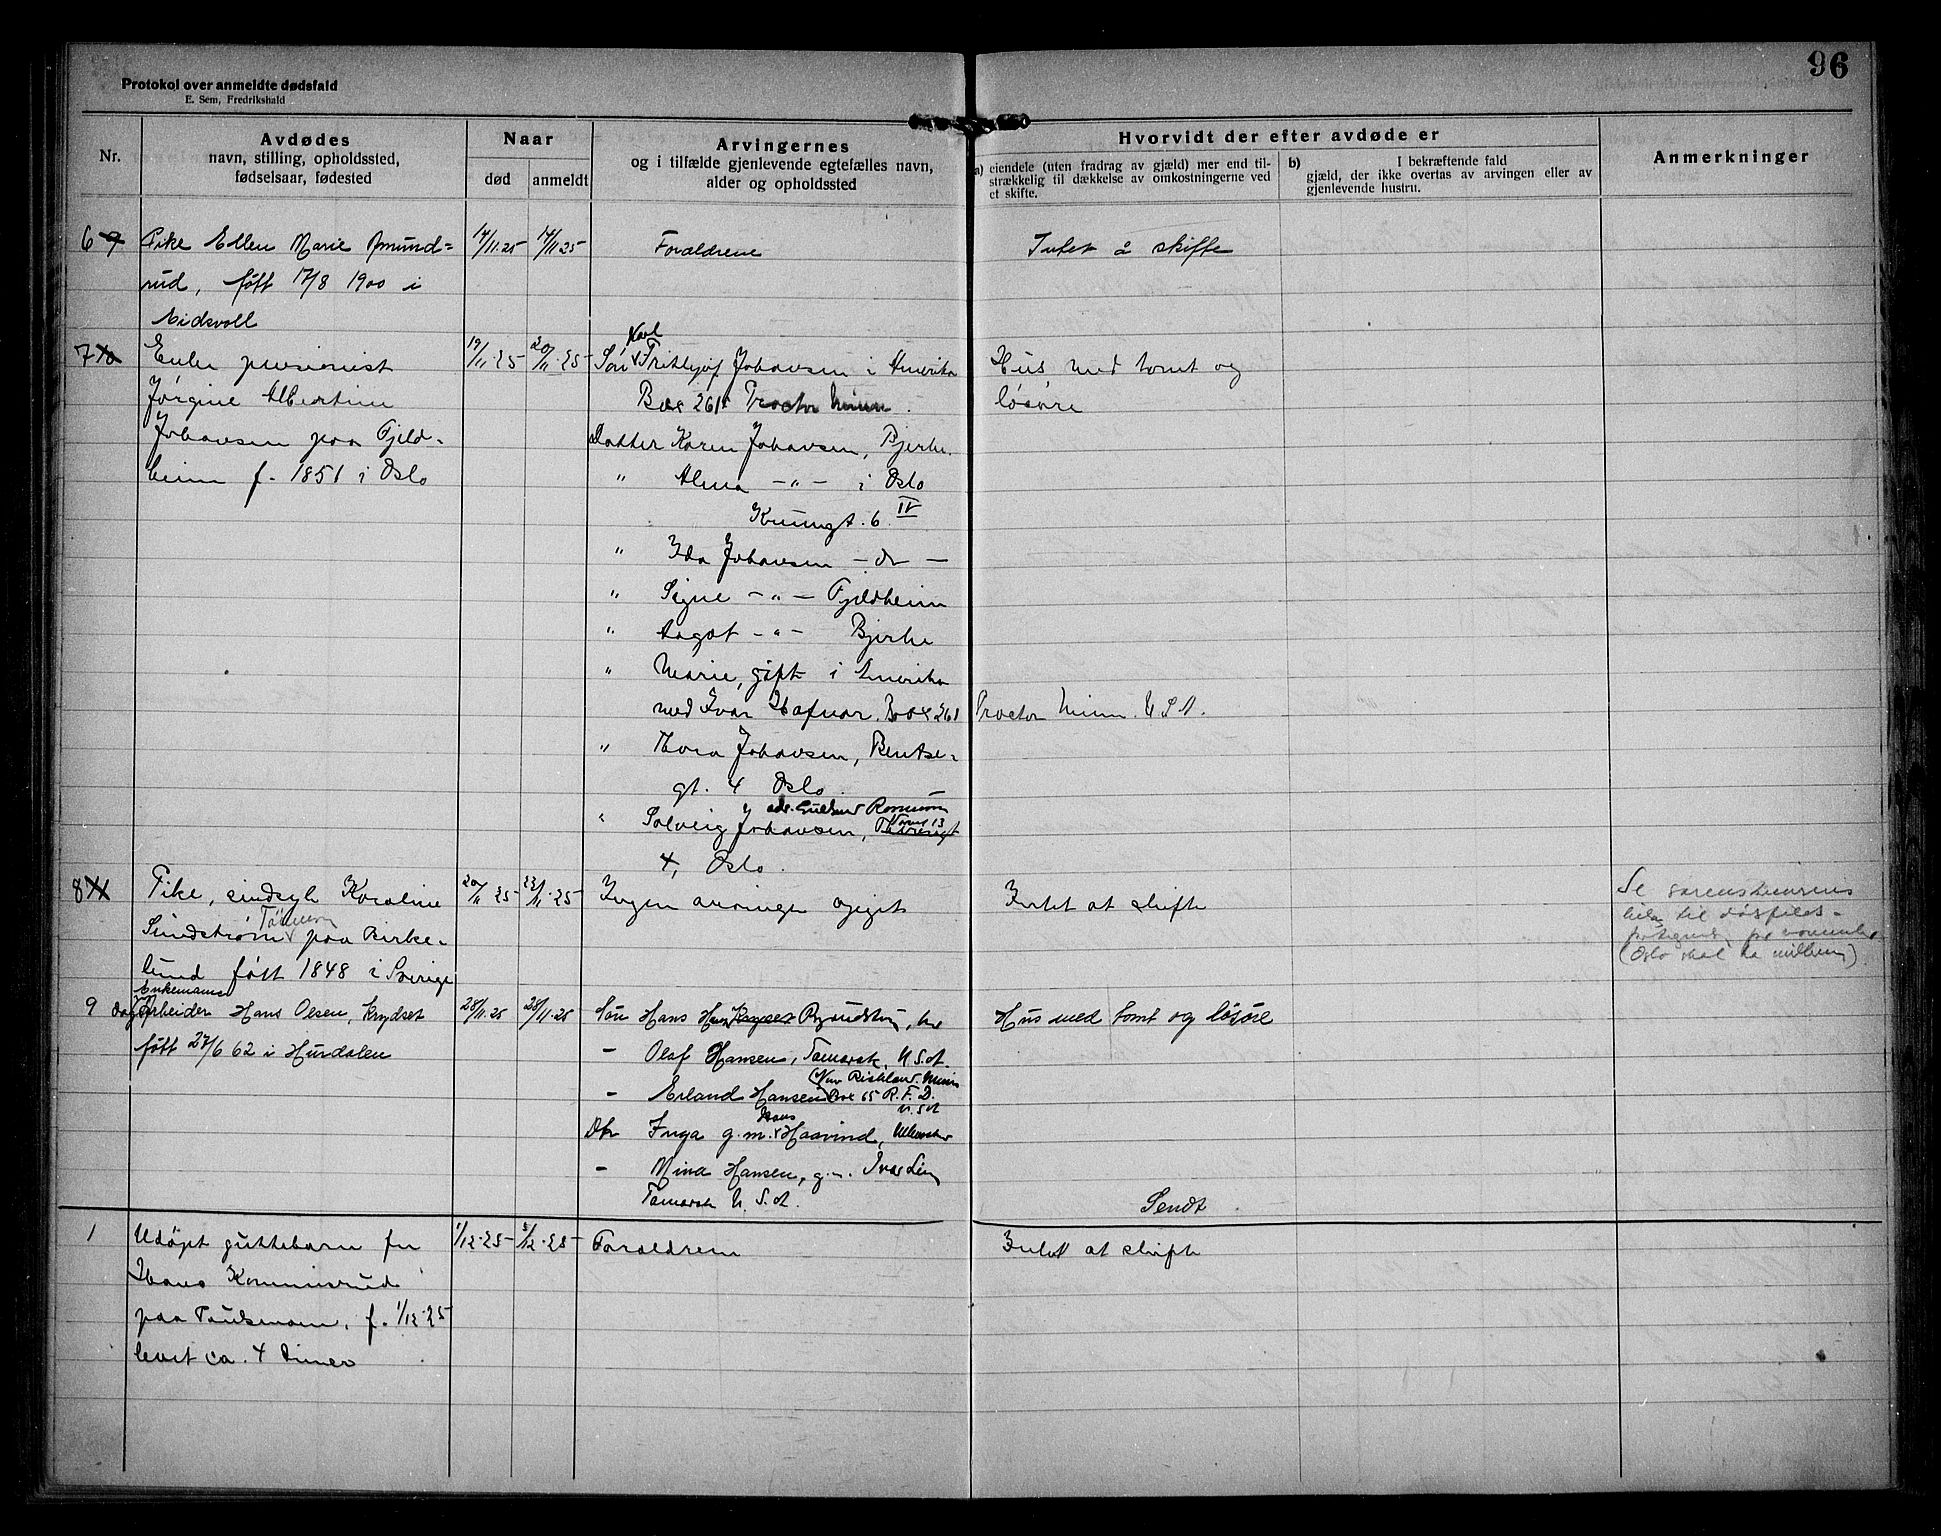 96
Protokol over anmeldte dødsfald
E. Sem, Fredrikshald
Nr.
Avdødes
navn, stilling, opholdssted,
fødselsaar, fødested
Naar
død
anmeldt
Arvingernes
og i tilfælde gjenlevende egtefælles navn,
alder og opholdssted
Hvorvidt der efter avdøde er
a) eiendele (uten fradrag av gjæld) mer end til-
strækkelig til dækkelse av omkostningerne ved
et skifte.
b) I bekræftende fald
gjæld, der ikke overtas av arvingen eller av
gjenlevende hustru.
Anmerkninger
6 9 Pike Ellen Marie Amund= 14/11.25 14/11 25 Foreldrene Intet å skifte
rud, født 17/8 1900 i
Eidsvoll
Karl
7 10 Enke pensionist 19/11.25 20/11.25 Søn Frithjof Johansen i Amerika Hus med tomt og
Jørgine Albertine Box 261 Proctor Minn. løsøre
Johansen paa Fjeld- Datter Karen Johansen, Bjerke.
heim f. 1851 i Oslo " Alma -"- i Oslo
6 IV
" Ida Johansen - do -
" Signe -"- Fjeldheim
" Aagot -"- Bjerke
" Marie, gift i Amerika
med Ivar Hafnor. Box 261 Proctor Minn. U S A.
" Thora Johansen, Bentse-
gt. 4 Oslo.
adr. Romum
" Solveig Johansen, 13
4, Oslo.
8 11 Pike, sindsyk Karoline 20/11.25 22/11.25 Ingen arvinger opgit Intet at skifte Se
Sundstrøm paa Birke- til
lund født 1848 i Sverige (Oslo skal ha )
Enkemand
9 Arbeider Hans Olsen, Krydset 28/11.25 28/11.25 Søn Hans Hansen Hus med tomt og løsøre
født 27/6 62 i Hurdalen - Olaf Hansen, Tamarak, U.S.A.
(Nu Richland. Minn
- Erland Hansen Box 65 R.F.D.
U.S.A
Hans
Dtr Inga g.m. Haavind,
- Mina Hansen, g.m. Ivar Lie
Tamarak U.S.A. Sendt
1 Udøpt guttebarn for 1/12-25 5/12-25 Foreldrene Intet at skifte
Hans Kommisrud
paa , f. 1/12-25
levet ca. 4 timer